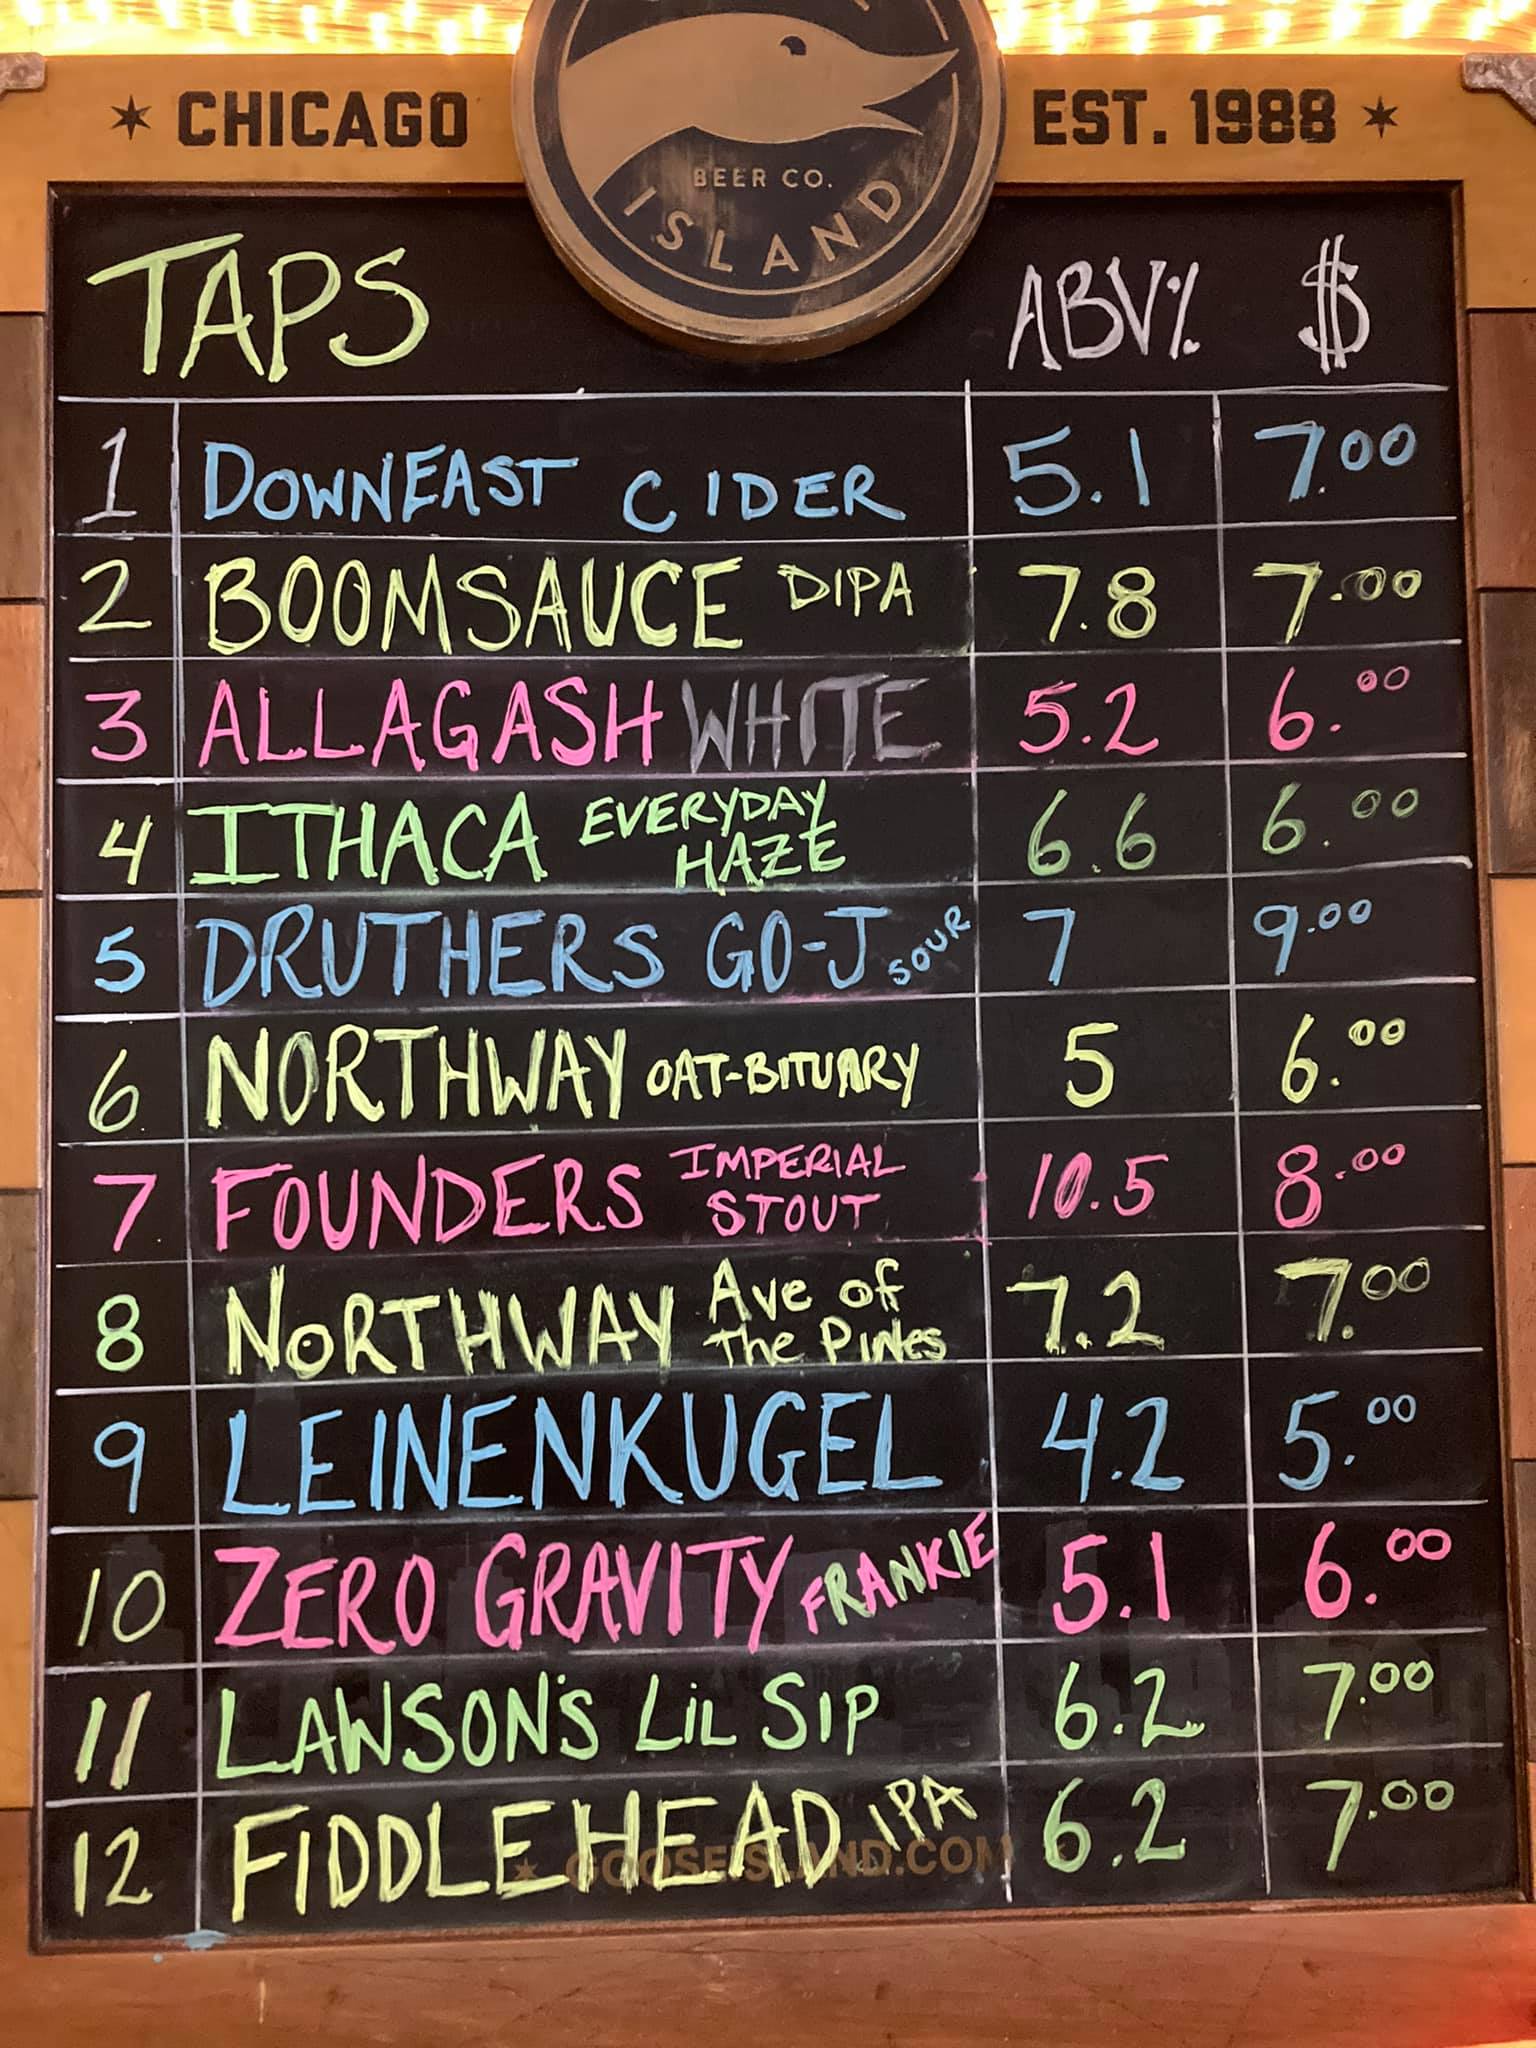 CHICAGO
BEER CO.
ISLAND
EST. 1988
TAPS ABV% $
1 DOWNEAST CIDER 5.1 7.00
2 BOOMSAUCE DIPA 7.8 7.00
3 ALLAGASH WHITE 5.2 6.00
4 ITHACA EVERYDAY HAZE 6.6 6.00
5 DRUTHERS GO-J SOUR 7 9.00
6 NORTHWAY OAT-BITUARY 5 6.00
7 FOUNDERS IMPERIAL STOUT 10.5 8.00
8 NORTHWAY Ave of the Pines 7.2 7.00
9 LEINENKUGEL 4.2 5.00
10 ZERO GRAVITY FRANKIE 5.1 6.00
11 LAWSON'S LiL SIP 6.2 7.00
12 FIDDLEHEAD IPA 6.2 7.00
GOOSEISLAND.COM